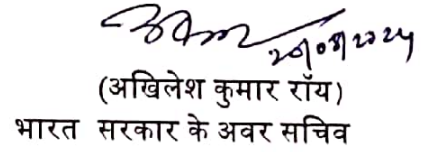 20/08/2024
(अखिलेश कुमार रॉय)
भारत सरकार के अवर सचिव